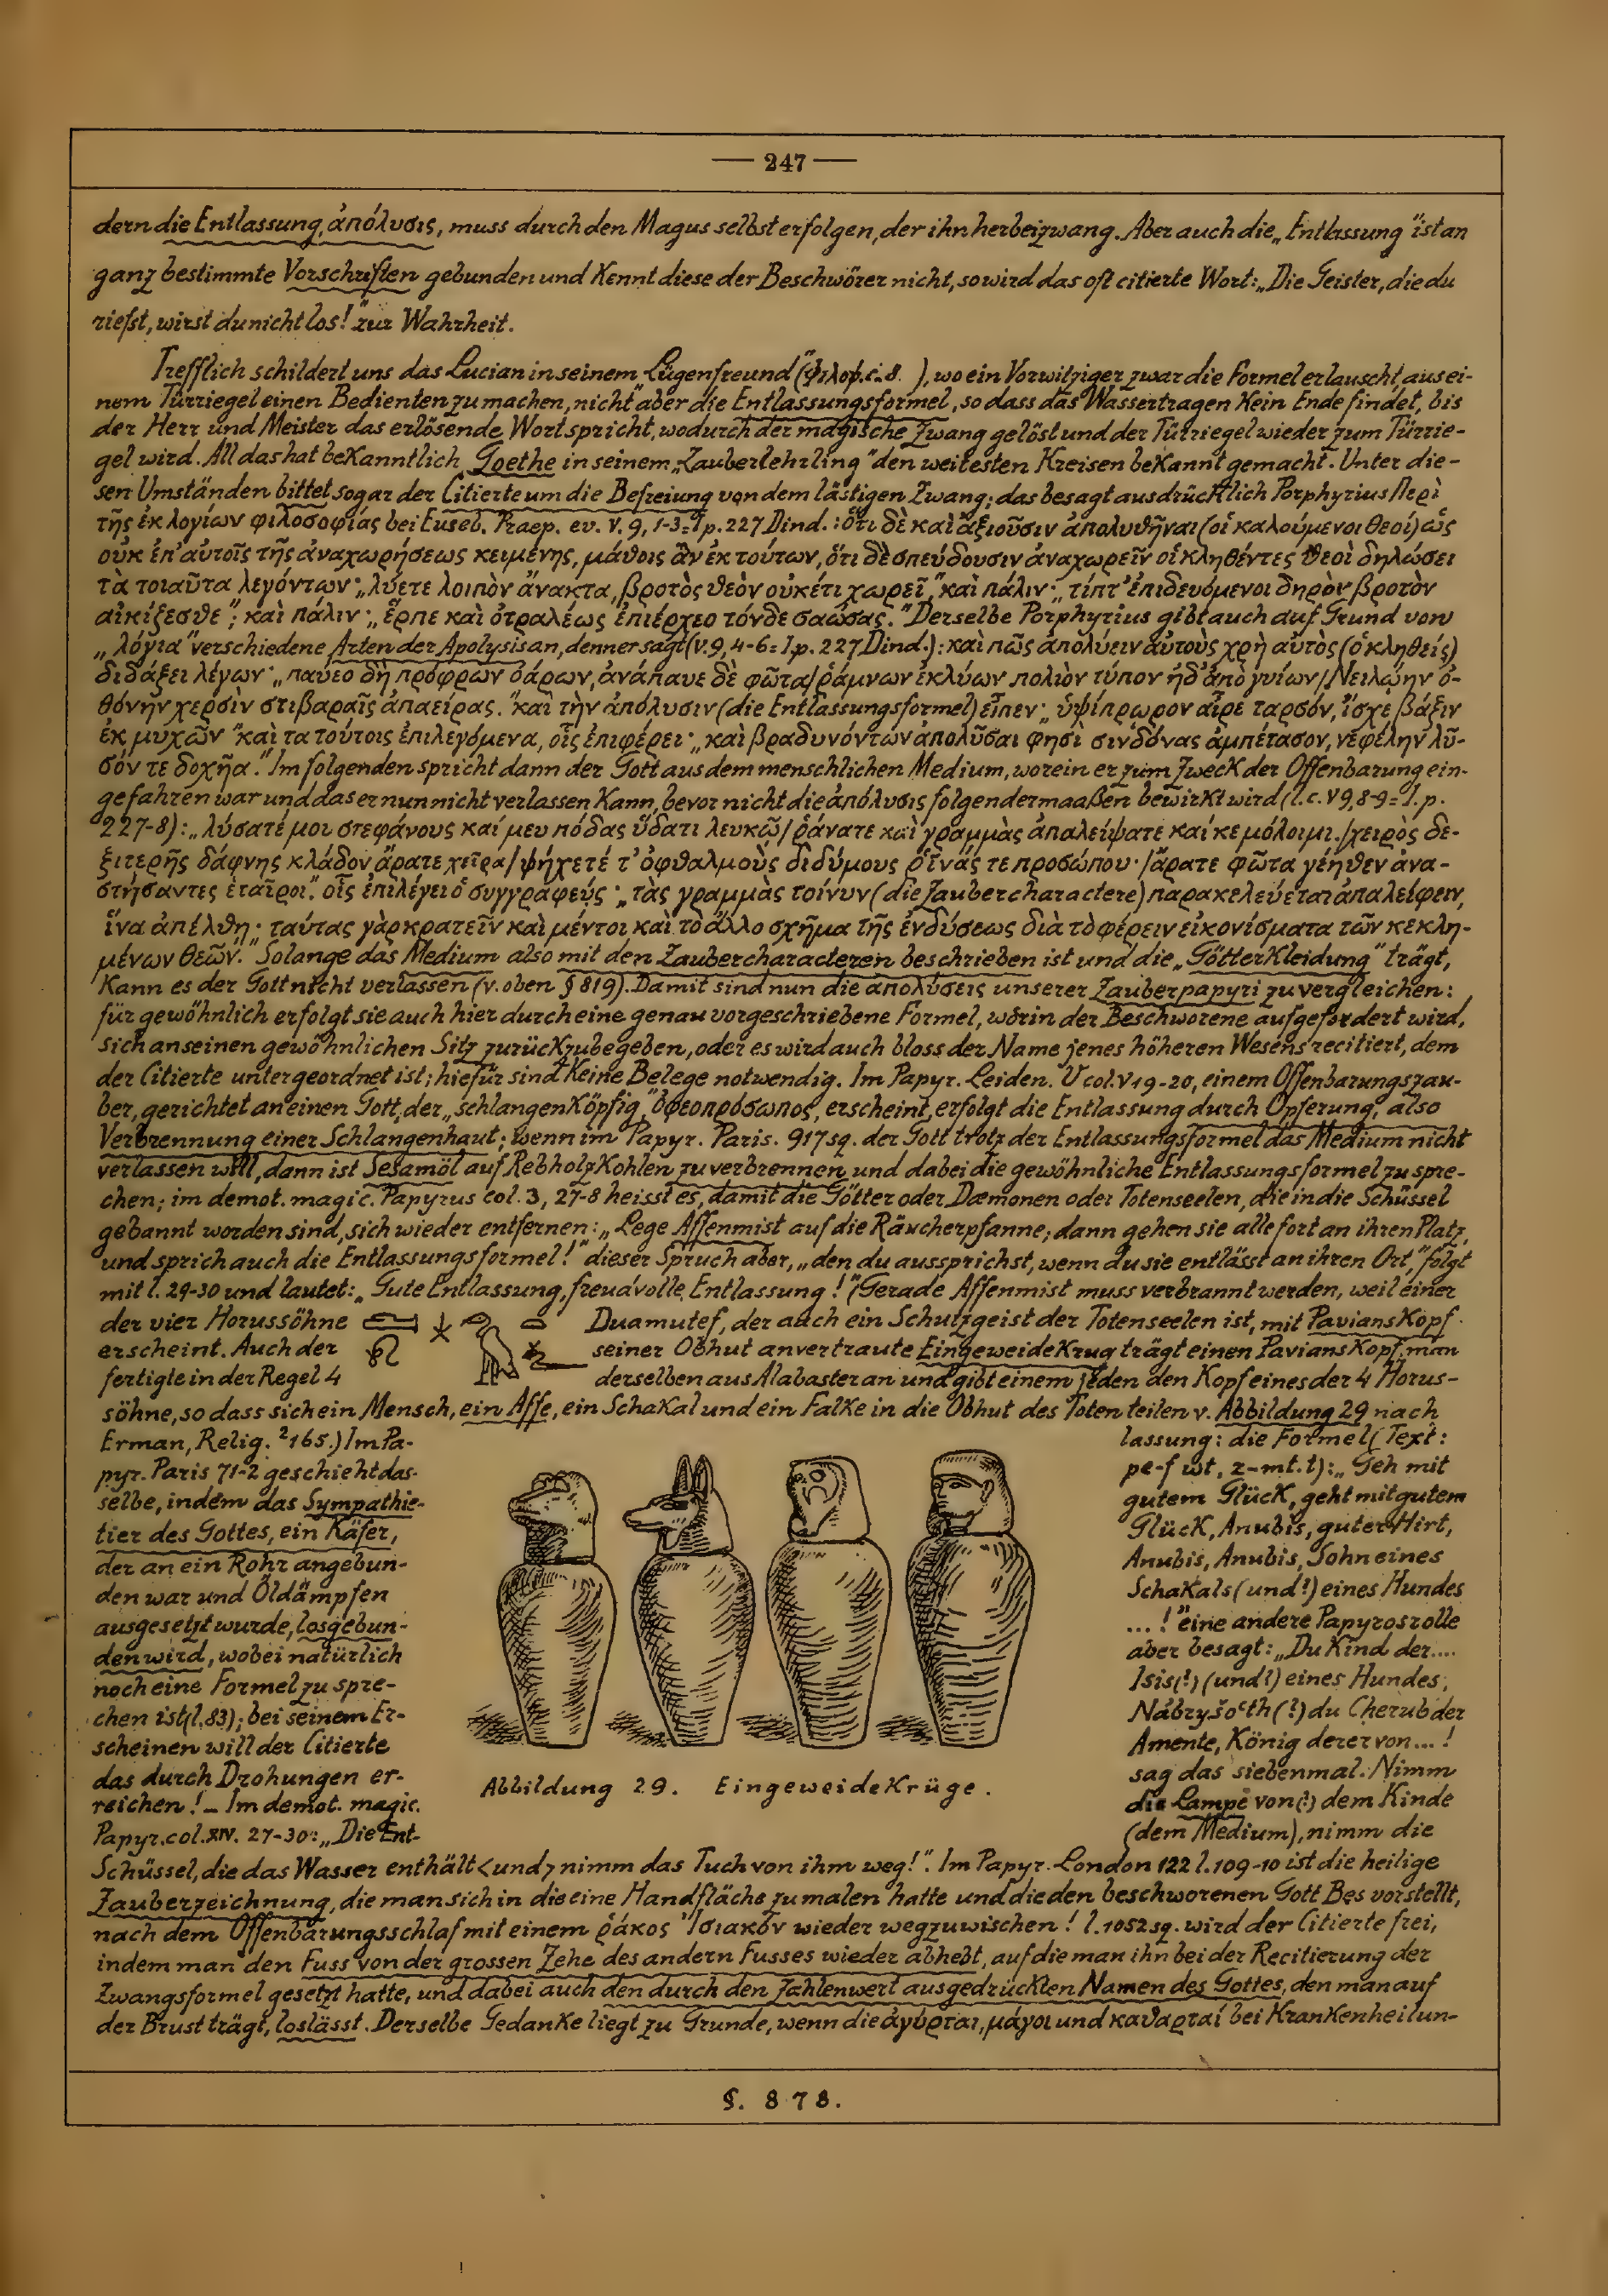 — 247 —
dern die Entlassung, ἀπόλυσις, muss durch den Magus selbst erfolgen, der ihn herbeizwang. Aber auch die „Entlassung" ist an
ganz bestimmte Vorschriften gebunden und kennt diese der Beschwörer nicht, so wird das oft citierte Wort: „Die Geister, die du
riefst, wirst du nicht los!" zur Wahrheit.
Trefflich schildert uns das Lucian in seinem „Lügenfreund" (Φιλοψ. c. 8. ), wo ein Vorwitziger zwar die Formel erlauscht, aus ei-
nem Türriegel einen Bedienten zu machen, nicht aber die Entlassungsformel, so dass das Wassertragen kein Ende findet, bis
der Herr und Meister das erlösende Wort spricht, wodurch der magische Zwang gelöst und der Türriegel wieder zum Türrie-
gel wird. All das hat bekanntlich Goethe in seinem „Zauberlehrling" den weitesten Kreisen bekannt gemacht. Unter die-
sen Umständen bittet sogar der Citierte um die Befreiung von dem lästigen Zwang; das besagt ausdrücklich Porphyrius Περὶ
τῆς ἐκ λογίων φιλοσοφίας bei Euseb. Praep. ev. V. 9, 1-3 = I p. 227 Dind.: ὅτι δὲ καὶ ἀξιοῦσιν ἀπολυθῆναι (οἱ καλούμενοι θεοί) ὡς
οὐκ ἐπ' αὐτοῖς τῆς ἀναχωρήσεως κειμένης, μάθοις ἂν ἐκ τούτων, ὅτι δὲ σπεύδουσιν ἀναχωρεῖν οἱ κληθέντες θεοὶ δηλώσει
τὰ τοιαῦτα λεγόντων· „λύετε λοιπὸν ἄνακτα, βροτὸς θεὸν οὐκέτι χωρεῖ," καὶ πάλιν· „τίπτ' ἐπιδευόμενοι δηρὸν βροτὸν
αἰκίζεσθε"; καὶ πάλιν· „ἕρπε καὶ ὀτραλέως ἐπιέρχεο τόνδε σαώσας." Derselbe Porphyrius gibt auch auf Grund von
„λόγια" verschiedene Arten der Apolysis an, denn er sagt (V. 9, 4-6 = I. p. 227 Dind.): καὶ πῶς ἀπολύειν αὐτοὺς χρὴ αὐτὸς (ὁ κληθείς)
διδάξει λέγων· „παύεο δὴ πρόφρων ὀάρων, ἀνάπαυε δὲ φῶτα/ῥάμνων ἐκλύων πολιὸν τύπον ἠδ' ἀπὸ γυίων/Νειλώην ὀ-
θόνην χερσὶν στιβαραῖς ἀπαείρας." καὶ τὴν ἀπόλυσιν (die Entlassungsformel) εἶπεν· „ὑψίπρωρον αἶρε ταρσόν, ἴσχε βάξιν
ἐκ μυχῶν" καὶ τὰ τούτοις ἐπιλεγόμενα, οἷς ἐπιφέρει· „καὶ βραδυνόντων ἀπολῦσαι φησὶ σινδόνας ἀμπέτασον, νεφέλην λῦ-
σόν τε δοχῆα." Im folgenden spricht dann der Gott aus dem menschlichen Medium, worein er zum Zweck der Offenbarung ein-
gefahren war und das er nun nicht verlassen kann, bevor nicht die ἀπόλυσις folgendermaaßen bewirkt wird (l. c. V 9, 8-9 = I. p.
227-8): „λύσατέ μοι στεφάνους καί μευ πόδας ὕδατι λευκῷ/ῥάνατε καὶ γραμμὰς ἀπαλείψατε καί κε μόλοιμι./χειρὸς δε-
ξιτερῆς δάφνης κλάδον ἄρατε χεῖρα/ψήχετέ τ' ὀφθαλμοὺς διδύμους ῥῖνάς τε προσώπου·/ἄρατε φῶτα γέηθεν ἀνα-
στήσαντες ἑταῖροι". οἷς ἐπιλέγει ὁ συγγραφεύς· „τὰς γραμμὰς τοίνυν (die Zaubercharactere) παρακελεύεται ἀπαλείφειν,
ἵνα ἀπέλθῃ· ταύτας γὰρ κρατεῖν καὶ μέντοι καὶ τὸ ἄλλο σχῆμα τῆς ἐνδύσεως διὰ τὸ φέρειν εἰκονίσματα τῶν κεκλη-
μένων θεῶν." Solange das Medium also mit den Zaubercharacteren beschrieben ist und die „Götterkleidung" trägt,
kann es der Gott nicht verlassen (v. oben § 819). Damit sind nun die ἀπολύσεις unserer Zauberpapyri zu vergleichen:
für gewöhnlich erfolgt sie auch hier durch eine genau vorgeschriebene Formel, worin der Beschworene aufgefordert wird,
sich an seinen gewöhnlichen Sitz zurückzubegeben, oder es wird auch bloss der Name jenes höheren Wesens recitiert, dem
der Citierte untergeordnet ist; hiefür sind keine Belege notwendig. Im Papyr. Leiden. V col. V 19-20, einem Offenbarungszau-
ber, gerichtet an einen Gott, der „schlangenköpfig" ὀφεοπρόσωπος, erscheint, erfolgt die Entlassung durch Opferung, also
Verbrennung einer Schlangenhaut; wenn im Papyr. Paris. 917 sq. der Gott trotz der Entlassungsformel das Medium nicht
verlassen will, dann ist Sesamöl auf Rebholzkohlen zu verbrennen und dabei die gewöhnliche Entlassungsformel zu spre-
chen; im demot. magic. Papyrus col. 3, 27-8 heisst es, damit die Götter oder Dæmonen oder Totenseelen, die in die Schüssel
gebannt worden sind, sich wieder entfernen: „Lege Affenmist auf die Räucherpfanne; dann gehen sie alle fort an ihren Platz,
und sprich auch die Entlassungsformel!" dieser Spruch aber, „den du aussprichst, wenn du sie entlässt an ihren Ort," folgt
mit l. 29-30 und lautet: „Gute Entlassung, freudvolle Entlassung!" (Gerade Affenmist muss verbrannt werden, weil einer
der vier Horussöhne Duamutef, der auch ein Schutzgeist der Totenseelen ist, mit Pavianskopf
erscheint. Auch der seiner Obhut anvertraute Eingeweidekrug trägt einen Pavianskopf, man
fertigte in der Regel 4 derselben aus Alabaster an und gibt einem jeden den Kopf eines der 4 Horus-
söhne, so dass sich ein Mensch, ein Affe, ein Schakal und ein Falke in die Obhut des Toten teilen v. Abbildung 29 nach
Erman, Relig. ²165.) Im Pa-
pyr. Paris 71-2 geschieht das-
selbe, indem das Sympathie-
tier des Gottes, ein Käfer,
der an ein Rohr angebun-
den war und Öldämpfen
ausgesetzt wurde, losgebun-
den wird, wobei natürlich
noch eine Formel zu spre-
chen ist (l. 83); bei seinem Er-
scheinen will der Citierte
das durch Drohungen er-
reichen! — Im demot. magic.
Papyr. col. XIV. 27-30: „Die Ent-
Abbildung 29. Eingeweidekrüge.
lassung: die Formel (Text:
pe-f wt, r-mt. t): „Geh mit
gutem Glück, geht mit gutem
Glück, Anubis, guter Hirt,
Anubis, Anubis, Sohn eines
Schakals (und?) eines Hundes
...!" eine andere Papyrosrolle
aber besagt: „Du Kind der....
Isis(?) (und?) eines Hundes,
Nabryšoᶜth (?) du Cherub der
Amente, König derer von...!
sag das siebenmal. Nimm
die Lampe von(?) dem Kinde
(dem Medium), nimm die
Schüssel, die das Wasser enthält <und> nimm das Tuch von ihm weg!". Im Papyr. London 122 l. 109-10 ist die heilige
Zauberzeichnung, die man sich in die eine Handfläche zu malen hatte und die den beschworenen Gott Bes vorstellt,
nach dem Offenbarungsschlaf mit einem ῥάκος Ἰσιακόν wieder wegzuwischen! l. 1052 sq. wird der Citierte frei,
indem man den Fuss von der grossen Zehe des andern Fusses wieder abhebt, auf die man ihn bei der Recitierung der
Zwangsformel gesetzt hatte, und dabei auch den durch den Zahlenwert ausgedrückten Namen des Gottes, den man auf
der Brust trägt, loslässt. Derselbe Gedanke liegt zu Grunde, wenn die ἀγύρται, μάγοι und καθαρταί bei Krankenheilun-
§. 878.